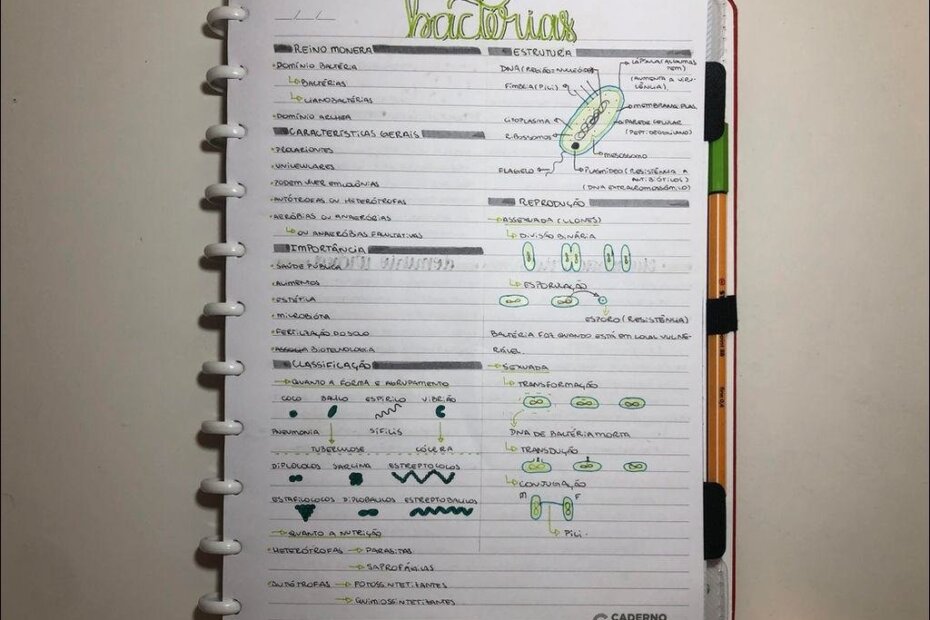 bactérias
REINO MONERA
• DOMÍNIO BACTÉRIA
↳ BACTÉRIAS
↳ CIANOBACTÉRIAS
• DOMÍNIO ARCHEA
CARACTERÍSTICAS GERAIS
• PROCARIONTES
• UNICELULARES
• PODEM VIVER EM COLÔNIAS
• AUTÓTROFAS OU HETERÓTROFAS
• AERÓBIAS OU ANAERÓBIAS
↳ OU ANAERÓBIAS FACULTATIVAS
IMPORTÂNCIA
• SAÚDE PÚBLICA
• ALIMENTOS
• ESTÉTICA
• MICROBIOTA
• FERTILIZAÇÃO DO SOLO
• BIOTECNOLOGIA
CLASSIFICAÇÃO
→ QUANTO A FORMA E AGRUPAMENTO
COCO BACILO ESPIRILO VIBRIÃO
PNEUMONIA SÍFILIS
TUBERCULOSE CÓLERA
DIPLOCOCOS SARCINA ESTREPTOCOCOS
ESTAFILOCOCOS DIPLOBACILOS ESTREPTOBACILOS
→ QUANTO A NUTRIÇÃO
• HETERÓTROFAS → PARASITAS
→ SAPROFÁGICAS
• AUTÓTROFAS → FOTOSSINTETITANTES
→ QUIMIOSSINTETITANTES
ESTRUTURA
DNA (REGIÃO-NUCLEÓIDE)
FÍMBRIA (PILI)
CITOPLASMA
RIBOSSOMOS
FLAGELO
CÁPSULA (ALGUMAS TEM)
(AUMENTA A VIRULÊNCIA)
MEMBRANA PLAS.
PAREDE CELULAR
(PEPTIDEOGLICANO)
MESOSSOMO
PLASMÍDEO (RESISTÊNCIA A ANTIBIÓTICOS)
(DNA EXTRACROMOSSÔMICO)
REPRODUÇÃO
→ ASSEXUADA (CLONES)
↳ DIVISÃO BINÁRIA
↳ ESPORULAÇÃO
ESPORO (RESISTÊNCIA)
BACTÉRIA FAZ QUANDO ESTÁ EM LOCAL VULNE-
RÁVEL.
→ SEXUADA
↳ TRANSFORMAÇÃO
DNA DE BACTÉRIA MORTA
↳ TRANSDUÇÃO
↳ CONJUGAÇÃO
M F
PILI.
CADERNO